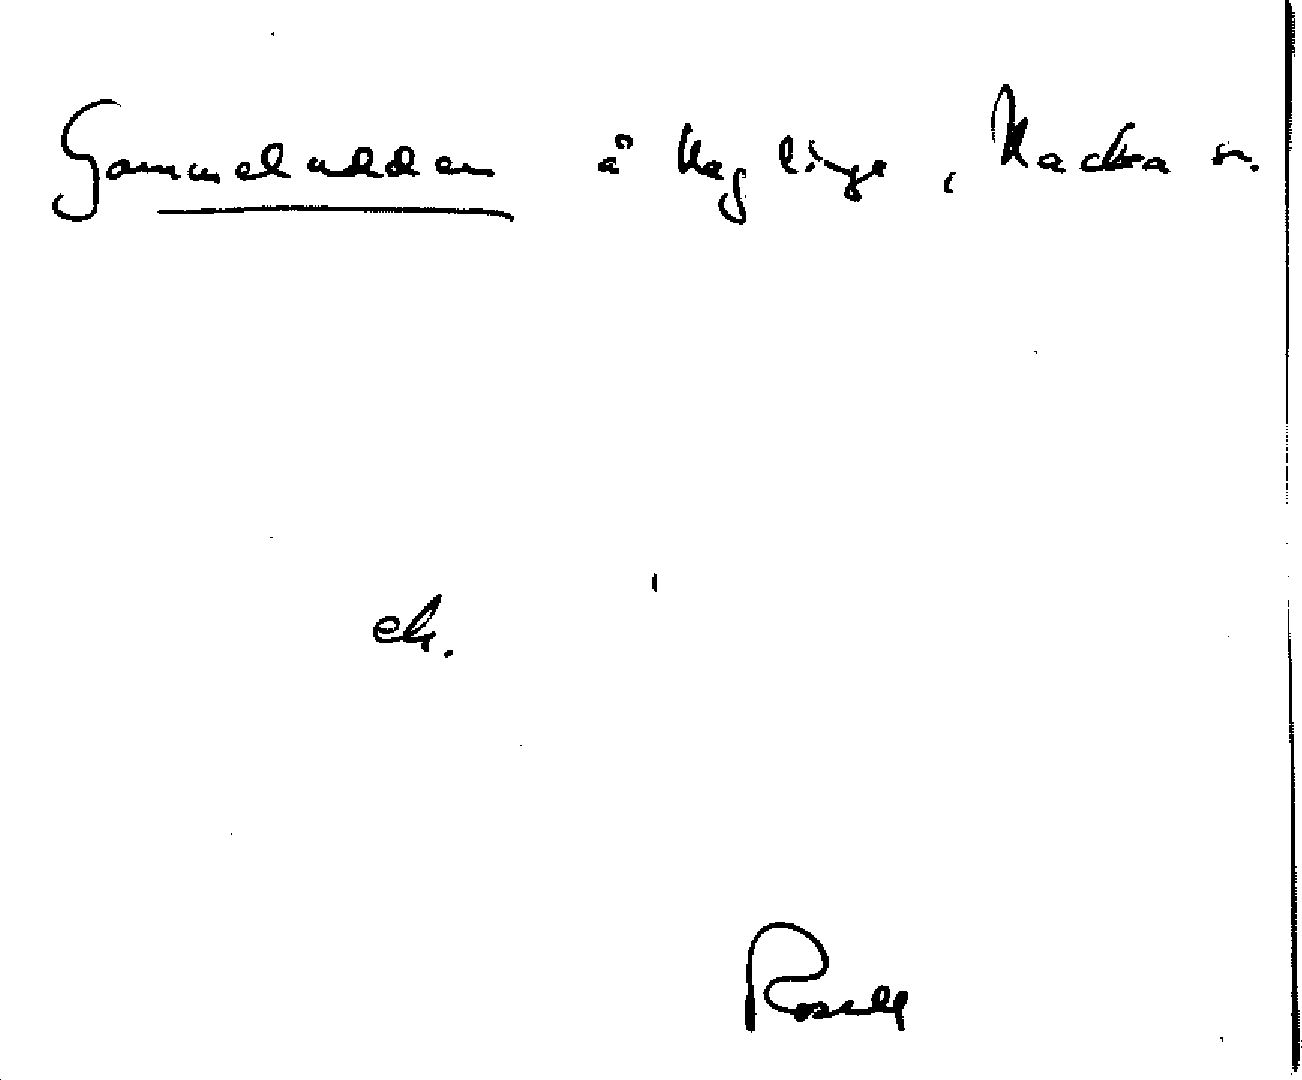 Gammeludden å Kaglinge, Nacka sn.
ek.
Rosell